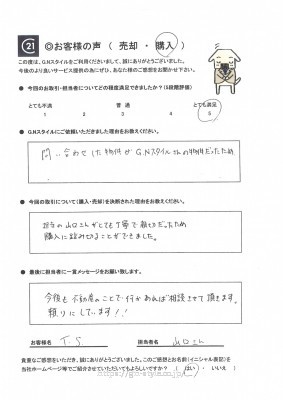 21 ◎お客様の声 ( 売却 ・ 購入 )
この度は、G.Nスタイルをご利用くださいまして、誠にありがとうございました。
今後のより良いサービス提供の為にぜひ、あなた様のご感想をお聞かせ下さい。
● 今回のお取引・担当者についてどの程度満足できましたか？(5段階評価)
とても不満 普通 とても満足
1 2 3 4 5
● G.Nスタイルにご依頼いただきました理由をお教えください。
問い合わせした物件がG.Nスタイルさんの物件だったため
● 今回の取引について(購入・売却)を決断された理由をお教えください。
担当の山口さんがとても丁寧で親切だったため
購入に踏み切ることができました。
● 最後に担当者に一言メッセージをお願い致します。
今後も不動産のことで何かあれば相談させて頂きます。
頼りにしています!!
お客様名 T.S 担当者名 山口さん
貴重なご意見をいただき、誠にありがとうございました。このご感想とお名前(イニシャル表記)を
当社ホームページ等でご紹介させていただいてもよろしいですか？ ( はい ・ いいえ )